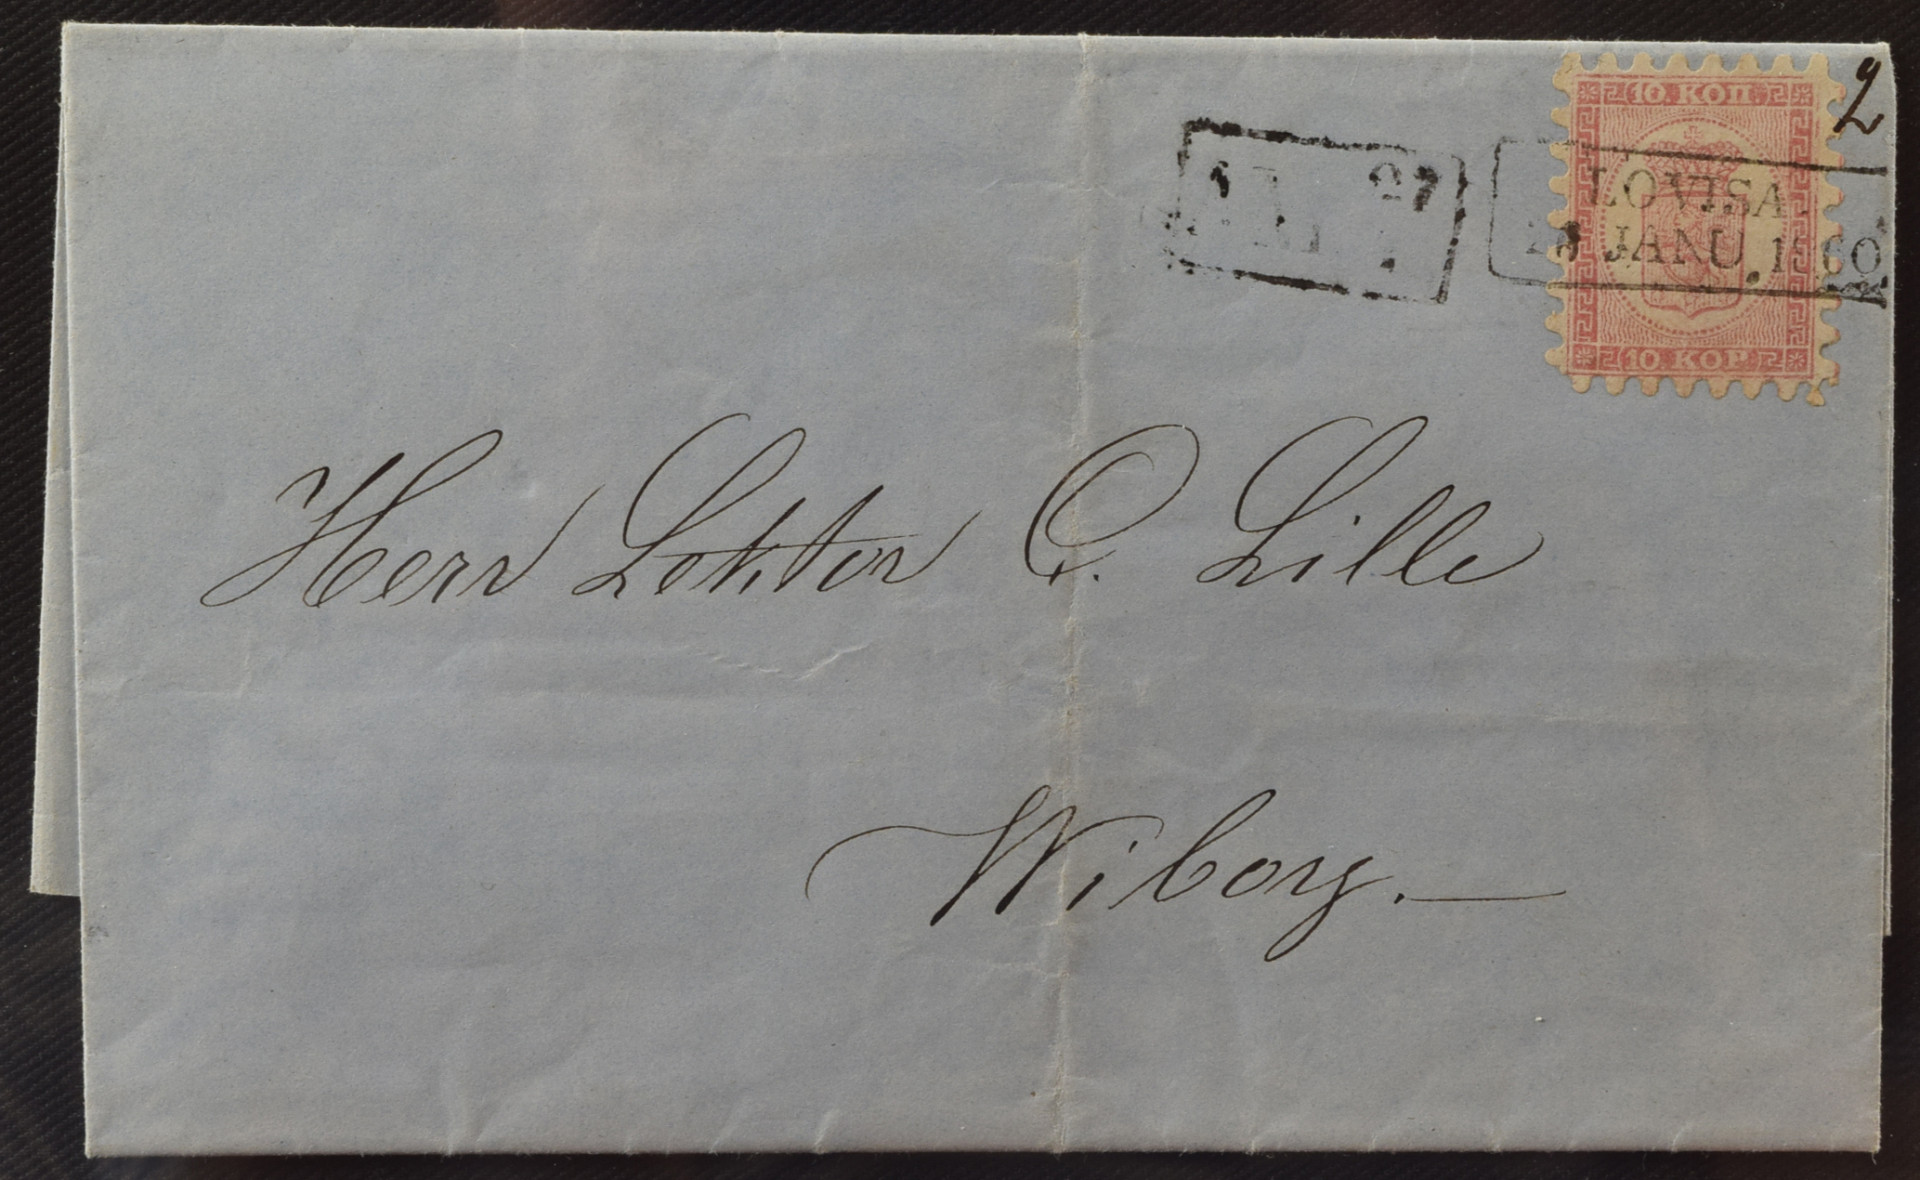 10. КОП.
2
LOVISA.
18 JANU. 1860
10. KOP.
27
Herr Lektor C. Lille
Wiborg. —